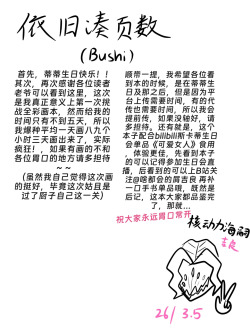 依旧凑页数
（Bushi）
首先，蒂蒂生日快乐！！
其次，再次感谢各位读者
老爷可以看到这里，这次
是我真正意义上第一次挑
战全彩画本，然而给我的
时间只有不到五天，所以
我爆种平均一天画八九个
小时三天画出来了，实际
疯狂！，如果有画的不和
各位胃口的地方请多担待
~ ~
（虽然我自己觉得这次画
的挺好，毕竟这次站且是
过了厨子自己这一关）
顺带一提，我希望各位看
到本的时候，是在蒂蒂生
日及那之后，但是因为平
台上传需要时间，有的代
传也需要时间，所以我会
提前传，如果没轴好，请
多担待。还有就是，这个
本子配合bilibili斯卡蒂生日
会单品《可爱女人》食用
，体验更佳，先看到本子
的可以记得参加生日会直
播，后看到的可以上B站关
注@啥都会的筒吉良 再补
一口手书单品哦，既然是
后记，这本大家都品鉴完
了，那就…
祝大家永远胃口常开
核动力海嗣
吉良
26/ 3.5